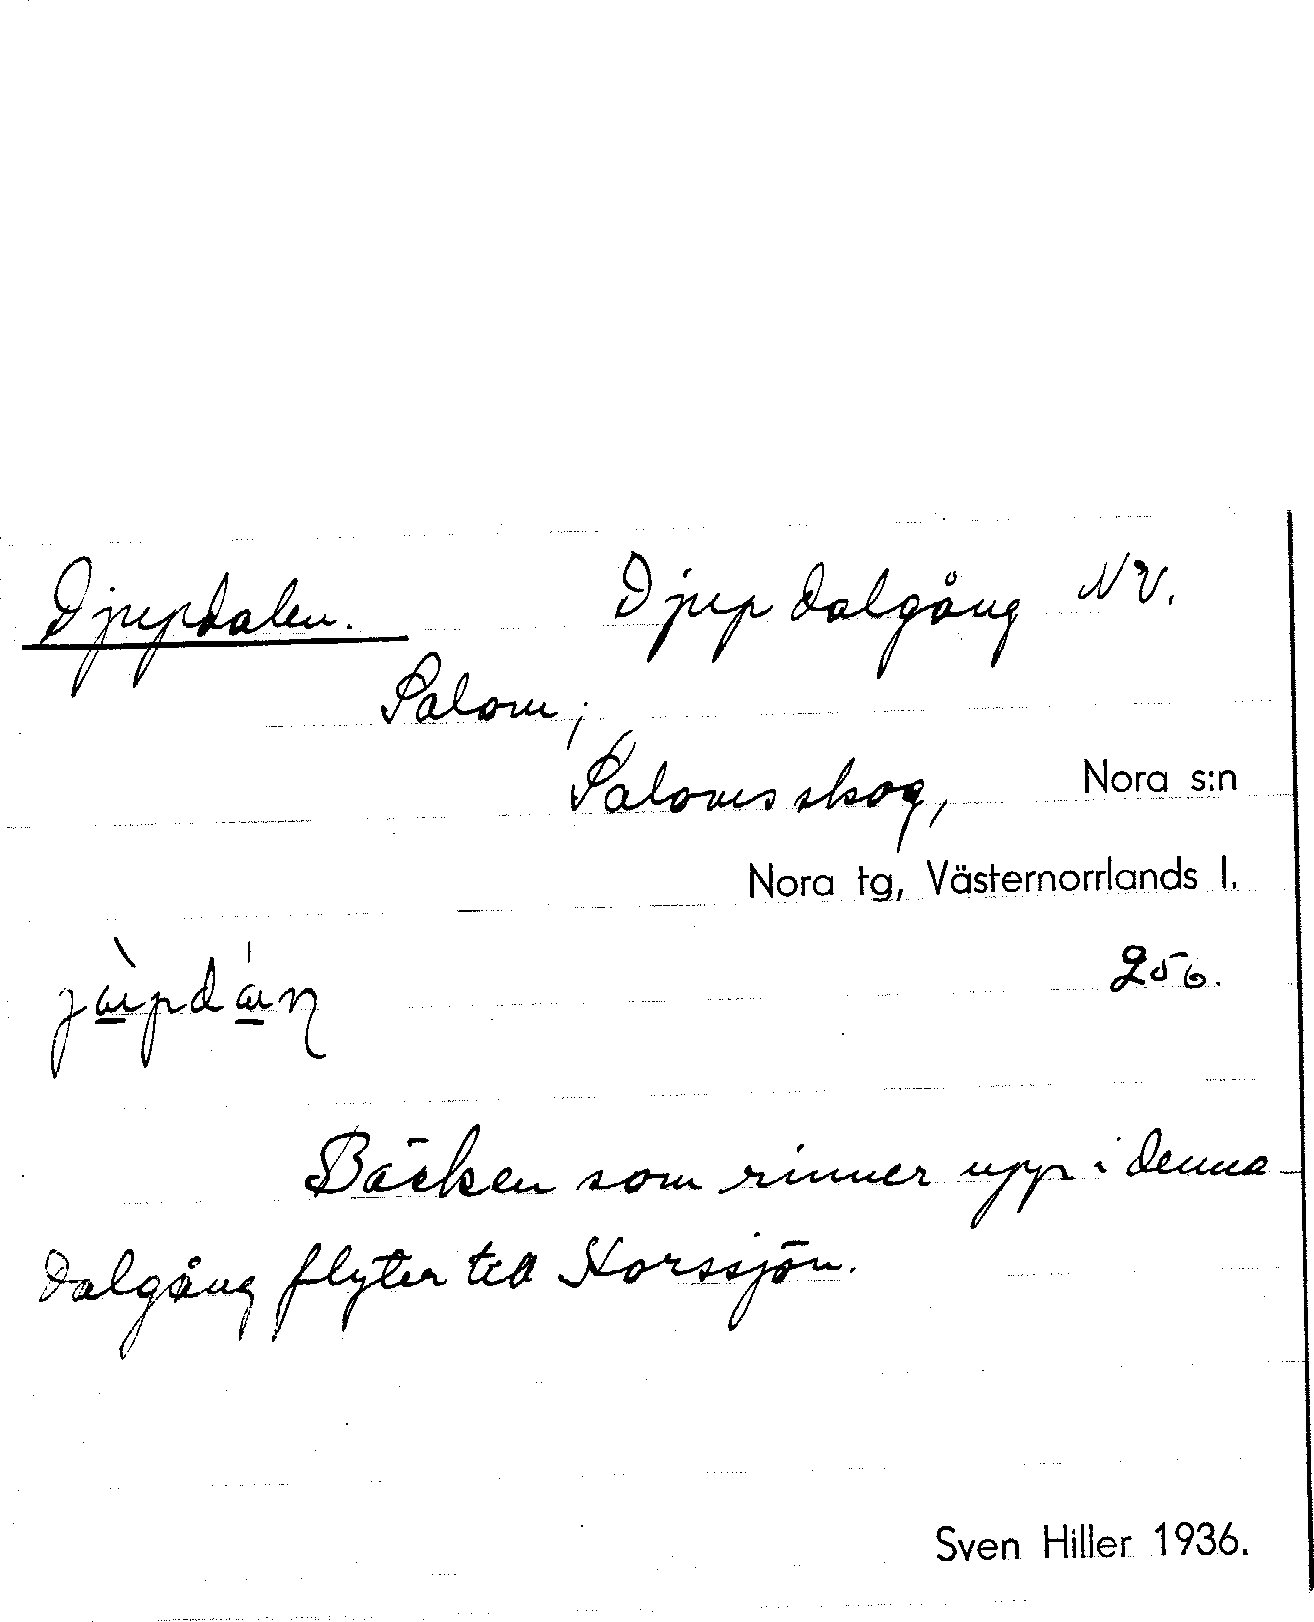 Djupdalen. Djup dalgång NV.
Salom;
Saloms skog, Nora s:n
Nora tg, Västernorrlands l.
256.
Bäcken som rinner upp i denna
dalgång flyter till Norssjön.
Sven Hiller 1936.